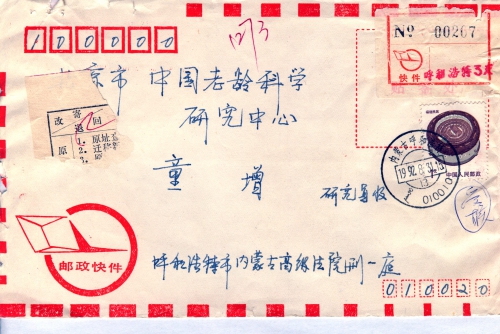 100000
Nº 00207
快件 呼和浩特3支
北京市 中国老龄科学
研究中心
改寄
退回
1. 原址
2. 迁移
3.
原
童 增
研究员收
内蒙古呼和
1992.8.31
010010
中国人民邮政
邮政快件
呼和浩特市内蒙古高级法院刑一庭
010020